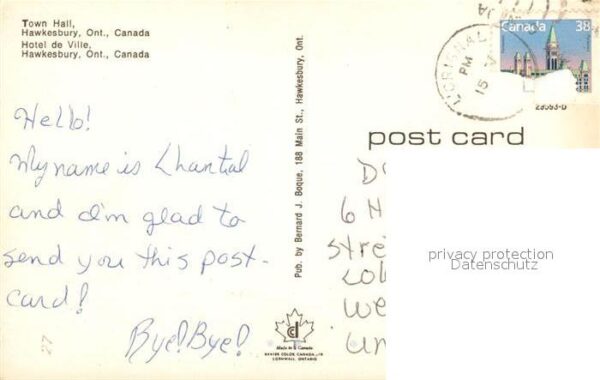 Town Hall,
Hawkesbury, Ont., Canada
Hotel de Ville,
Hawkesbury, Ont., Canada
Hello!
My name is Chantal
and I'm glad to
send you this post-
card!
Bye! Bye!
27
Pub. by Bernard J. Boque, 188 Main St., Hawkesbury, Ont.
Made in Canada
CORNWALL, ONTARIO
L'ORIGNAL
PM
15
Canada 38
28593-D
post card
D
6 H
stre
col
we
un
privacy protection
Datenschutz